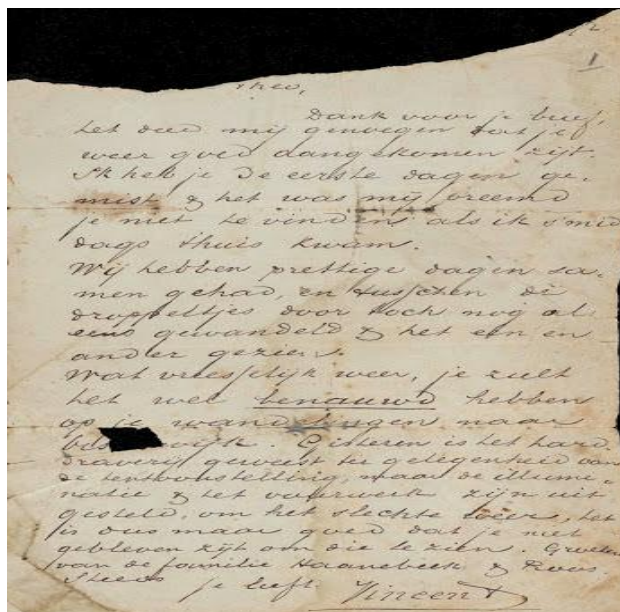 1
Theo,
Dank voor je brief,
het deed mij genoegen dat je
weer goed aangekomen zijt.
Ik heb je de eerste dagen ge-
mist & het was mij vreemd
je niet te vinden als ik s'mid
dags thuis kwam.
Wij hebben prettige dagen sa-
men gehad, en tusschen de
droppeltjes door toch nog al
eens gewandeld & het een en
ander gezien.
Wat vreesselijk weer, je zult
het wel benauwd hebben
op je wandelingen naar
Gisteren is het hard-
draverij geweest ter gelegenheid van
de tentoonstelling, maar de illumi-
natie & het vuurwerk zijn uit
gesteld, om het slechte weer, het
is dus maar goed dat je niet
gebleven zijt om die te zien. Groeten
van de familie Haanebeek & Roos.
Steeds
je liefh. Vincent